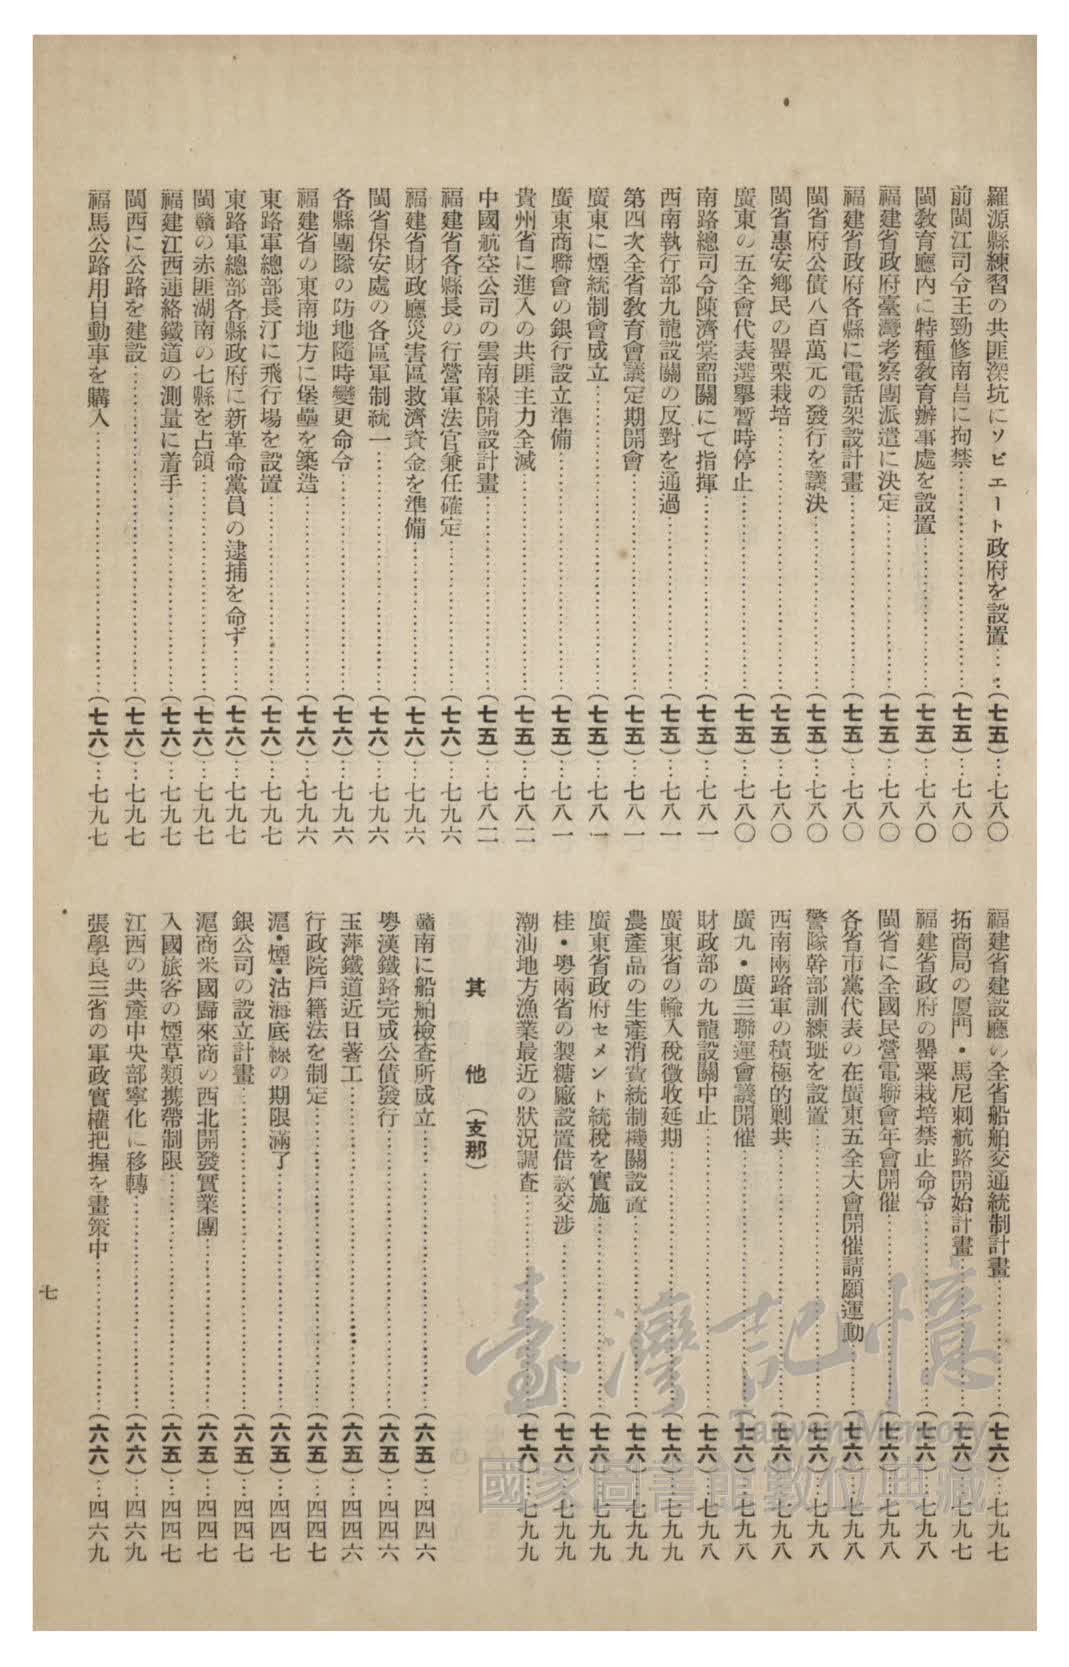 羅源縣練習の共匪深坑にソビエート政府を設置……(七五)…七八〇
前閩江司令王勁修南昌に拘禁……(七五)…七八〇
閩敎育廳內に特種敎育辦事處を設置……(七五)…七八〇
福建省政府臺灣考察團派遣に決定……(七五)…七八〇
福建省政府各縣に電話架設計畫……(七五)…七八〇
閩省府公債八百萬元の發行を議決……(七五)…七八〇
閩省惠安鄉民の罌粟栽培……(七五)…七八〇
廣東の五全會代表選擧暫時停止……(七五)…七八〇
南路總司令陳濟棠韶關にて指揮……(七五)…七八一
西南執行部九龍設關の反對を通過……(七五)…七八一
第四次全省敎育會議定期開會……(七五)…七八一
廣東に煙統制會成立……(七五)…七八一
廣東商聯會の銀行設立準備……(七五)…七八一
貴州省に進入の共匪主力全滅……(七五)…七八二
中國航空公司の雲南線開設計畫……(七五)…七八二
福建省各縣長の行營軍法官兼任確定……(七六)…七九六
福建省財政廳災害區救濟資金を準備……(七六)…七九六
閩省保安處の各區軍制統一……(七六)…七九六
各縣團隊の防地隨時變更命令……(七六)…七九六
福建省の東南地方に堡壘を築造……(七六)…七九六
東路軍總部長汀に飛行場を設置……(七六)…七九七
東路軍總部各縣政府に新革命黨員の逮捕を命ず……(七六)…七九七
閩贛の赤匪湖南の七縣を占領……(七六)…七九七
福建江西連絡鐵道の測量に着手……(七六)…七九七
閩西に公路を建設……(七六)…七九七
福馬公路用自動車を購入……(七六)…七九七
福建省建設廳の全省船舶交通統制計畫……(七六)…七九七
拓商局の厦門・馬尼剌航路開始計畫……(七六)…七九七
福建省政府の罌粟栽培禁止命令……(七六)…七九八
閩省に全國民營電聯會年會開催……(七六)…七九八
各省市黨代表の在廣東五全大會開催請願運動……(七六)…七九八
警隊幹部訓練班を設置……(七六)…七九八
西南兩路軍の積極的剿共……(七六)…七九八
廣九・廣三聯運會議開催……(七六)…七九八
財政部の九龍設關中止……(七六)…七九八
廣東省の輸入稅徵收延期……(七六)…七九九
農產品の生產消費統制機關設置……(七六)…七九九
廣東省政府セメント統稅を實施……(七六)…七九九
桂・粵兩省の製糖廠設置借款交涉……(七六)…七九九
潮汕地方漁業最近の狀況調査……(七六)…七九九
其他(支那)
贛南に船舶檢査所成立……(六五)…四四六
粵漢鐵路完成公債發行……(六五)…四四六
玉萍鐵道近日著工……(六五)…四四六
行政院戶籍法を制定……(六五)…四四七
滬・煙・沽海底線の期限滿了……(六五)…四四七
銀公司の設立計畫……(六五)…四四七
滬商米國歸來商の西北開發實業團……(六五)…四四七
入國旅客の煙草類携帶制限……(六五)…四四七
江西の共產中央部寧化に移轉……(六六)…四六九
張學良三省の軍政實權把握を畫策中……(六六)…四六九
七
臺灣記憶
Taiwan Memory
國家圖書館數位典藏